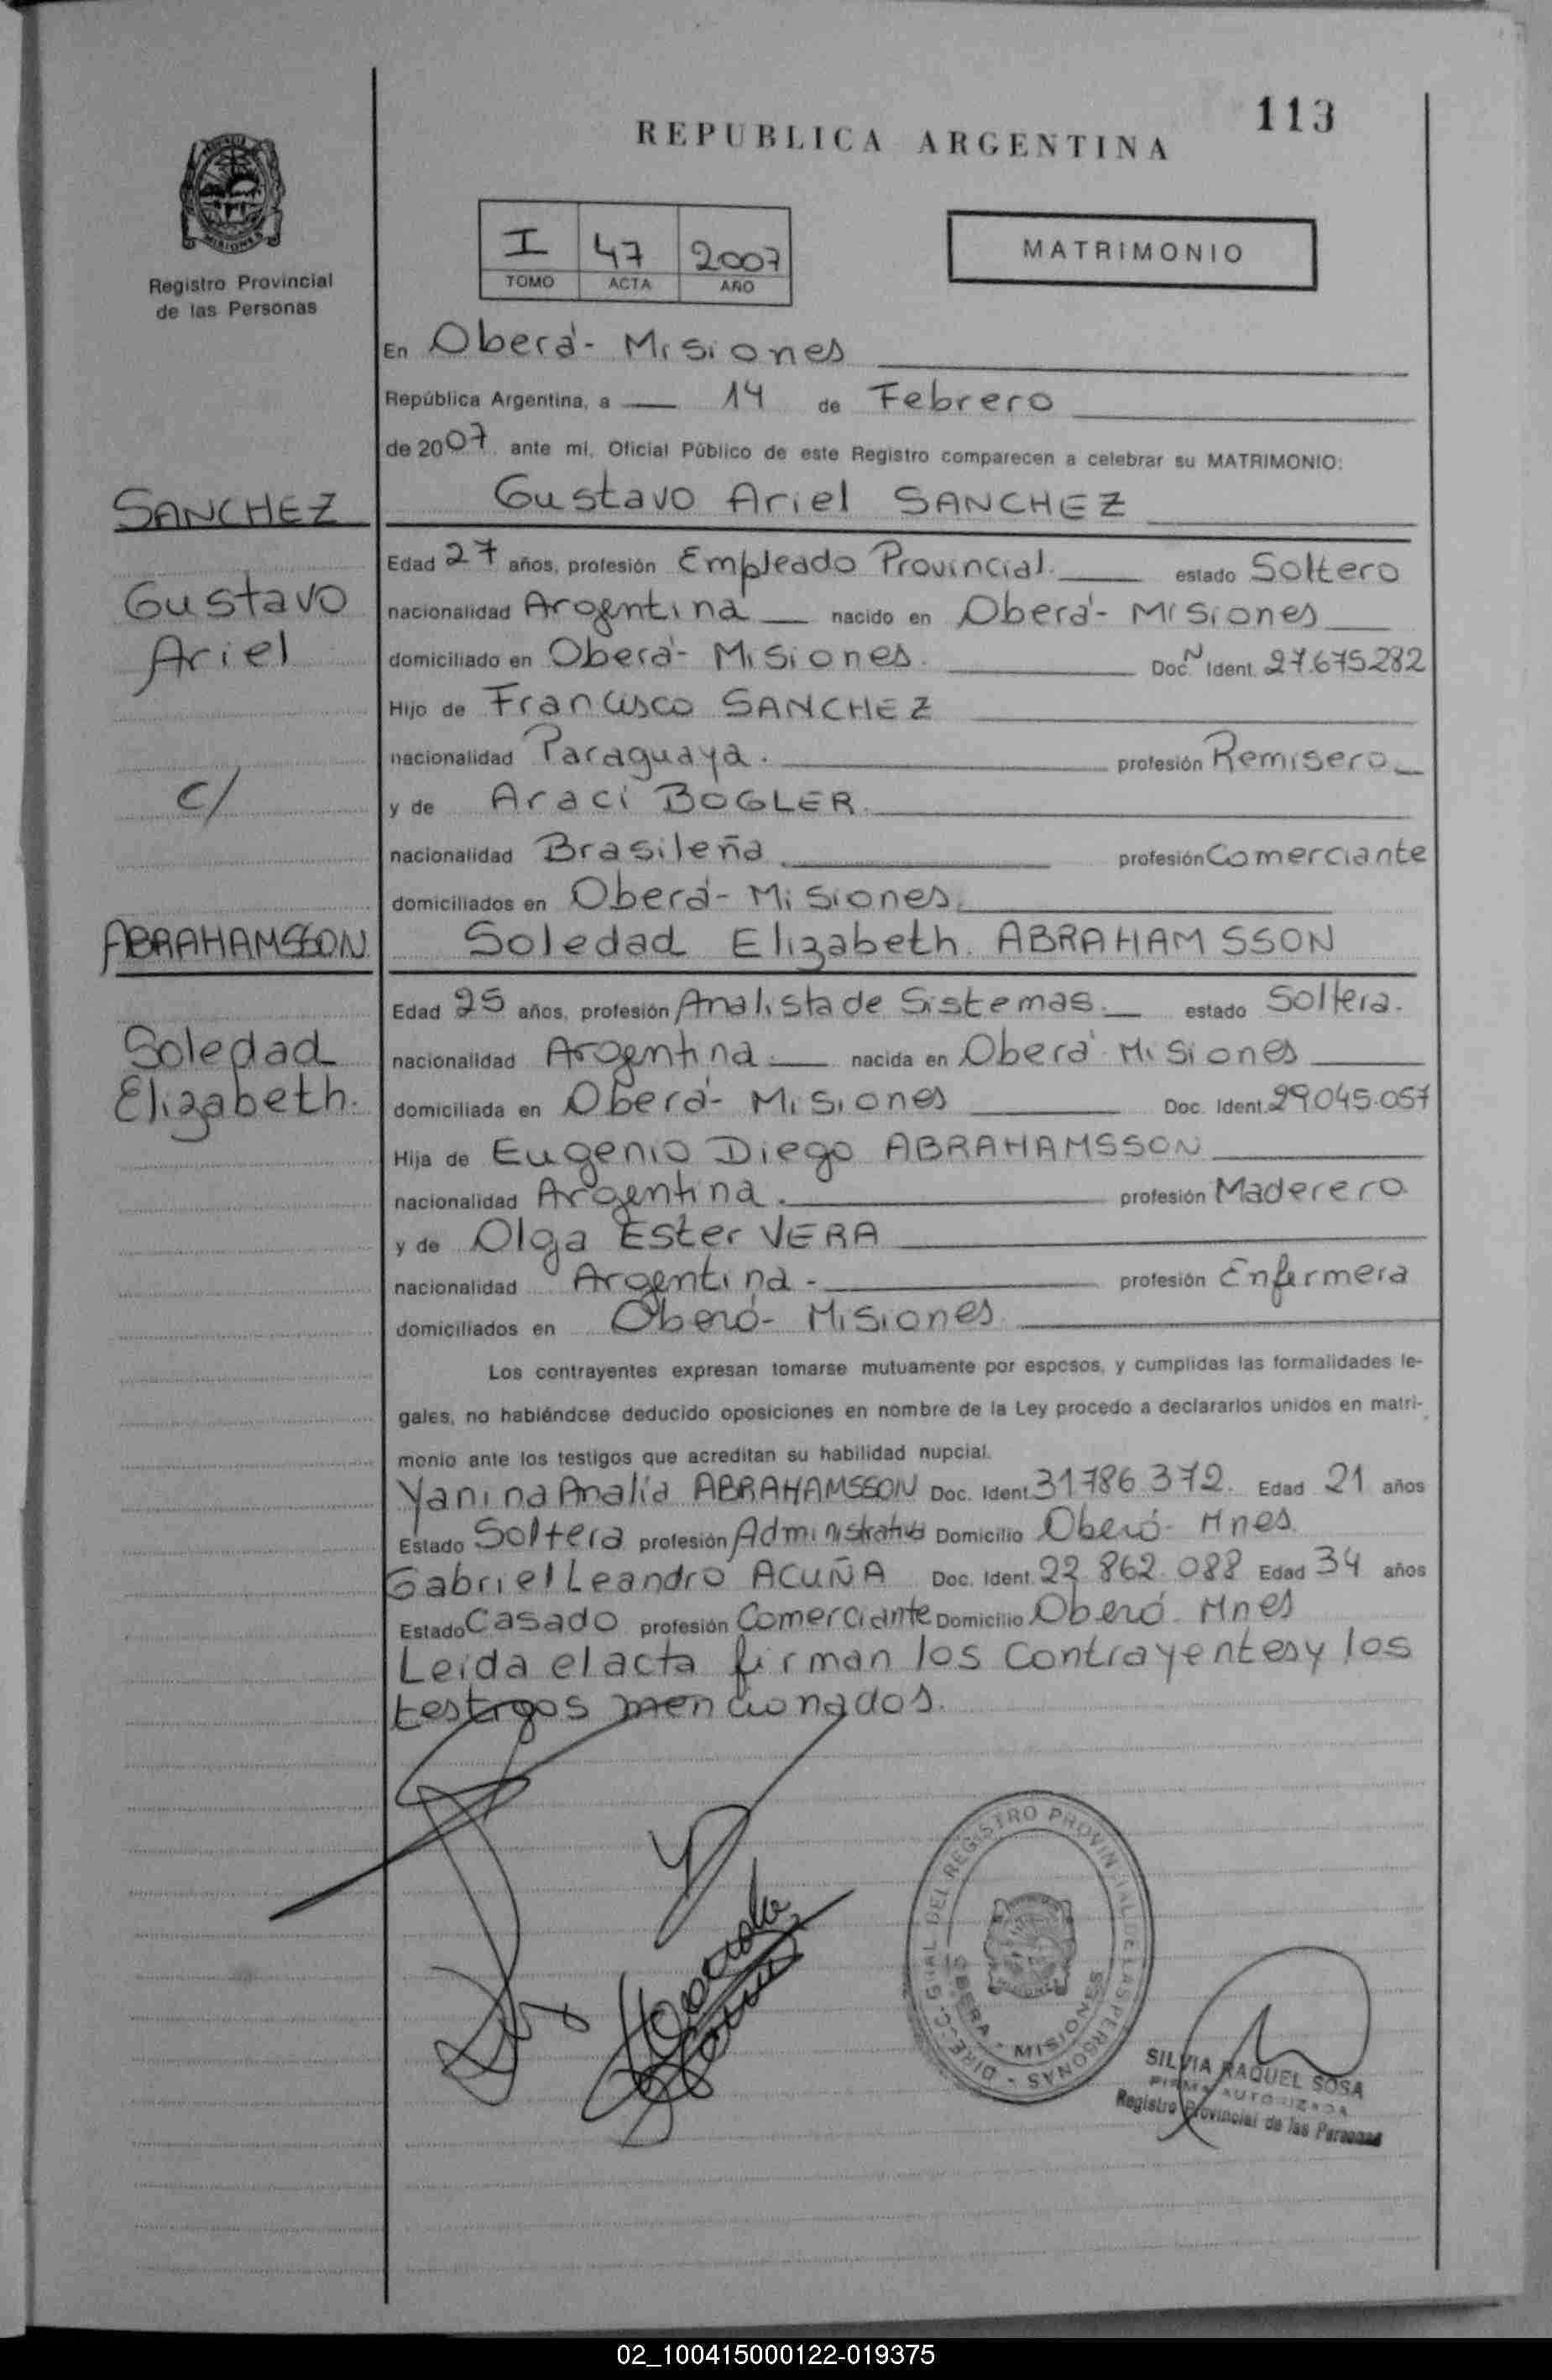 113
REPUBLICA ARGENTINA
MISIONES
Registro Provincial
de las Personas
I 47 2007
TOMO ACTA AÑO
MATRIMONIO
En Oberá- Misiones
República Argentina, a 14 de Febrero
de 2007 ante mí, Oficial Público de este Registro comparecen a celebrar su MATRIMONIO:
SANCHEZ
Gustavo Ariel SANCHEZ
Edad 27 años, profesión Empleado Provincial. estado Soltero
Gustavo
nacionalidad Argentina nacido en Oberá- Misiones
Ariel
domiciliado en Oberá- Misiones. Doc N Ident. 27.675.282
Hijo de Francisco SANCHEZ
nacionalidad Paraguaya. profesión Remisero
c/
y de Araci BOGLER.
nacionalidad Brasileña profesión Comerciante
domiciliados en Oberá- Misiones.
ABRAHAMSSON
Soledad Elizabeth. ABRAHAMSSON
Edad 25 años, profesión Analista de Sistemas. estado Soltera.
Soledad
nacionalidad Argentina. nacida en Oberá- Misiones
Elizabeth.
domiciliada en Oberá- Misiones Doc. Ident. 29.045.057
Hija de Eugenio Diego ABRAHAMSSON
nacionalidad Argentina. profesión Maderero.
y de Olga Ester VERA
nacionalidad Argentina- profesión Enfermera
domiciliados en Oberá- Misiones.
Los contrayentes expresan tomarse mutuamente por esposos, y cumplidas las formalidades le-
gales, no habiéndose deducido oposiciones en nombre de la Ley procedo a declararlos unidos en matri-
monio ante los testigos que acreditan su habilidad nupcial.
Yanina Analía ABRAHAMSSON Doc. Ident. 31.786.372. Edad 21 años
Estado Soltera profesión Administrativa Domicilio Oberá- Mnes.
Gabriel Leandro ACUÑA Doc. Ident. 22.862.088 Edad 34 años
Estado Casado profesión Comerciante Domicilio Oberá- Mnes
Leída el acta firman los contrayentes y los
testigos mencionados.
DIREC. GRAL. DEL REGISTRO PROVINCIAL DE LAS PERSONAS -
OBERA - MISIONES
SILVIA RAQUEL SOSA
FIRMA AUTORIZADA
Registro Provincial de las Personas
02_100415000122-019375